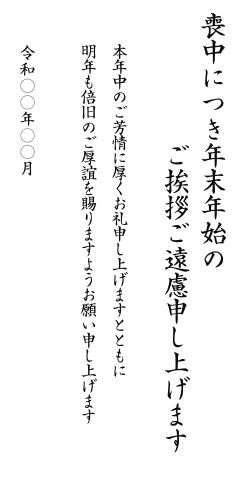 喪中につき年末年始の
ご挨拶ご遠慮申し上げます
本年中のご芳情に厚くお礼申し上げますとともに
明年も倍旧のご厚誼を賜りますようお願い申し上げます
令和〇〇年〇〇月